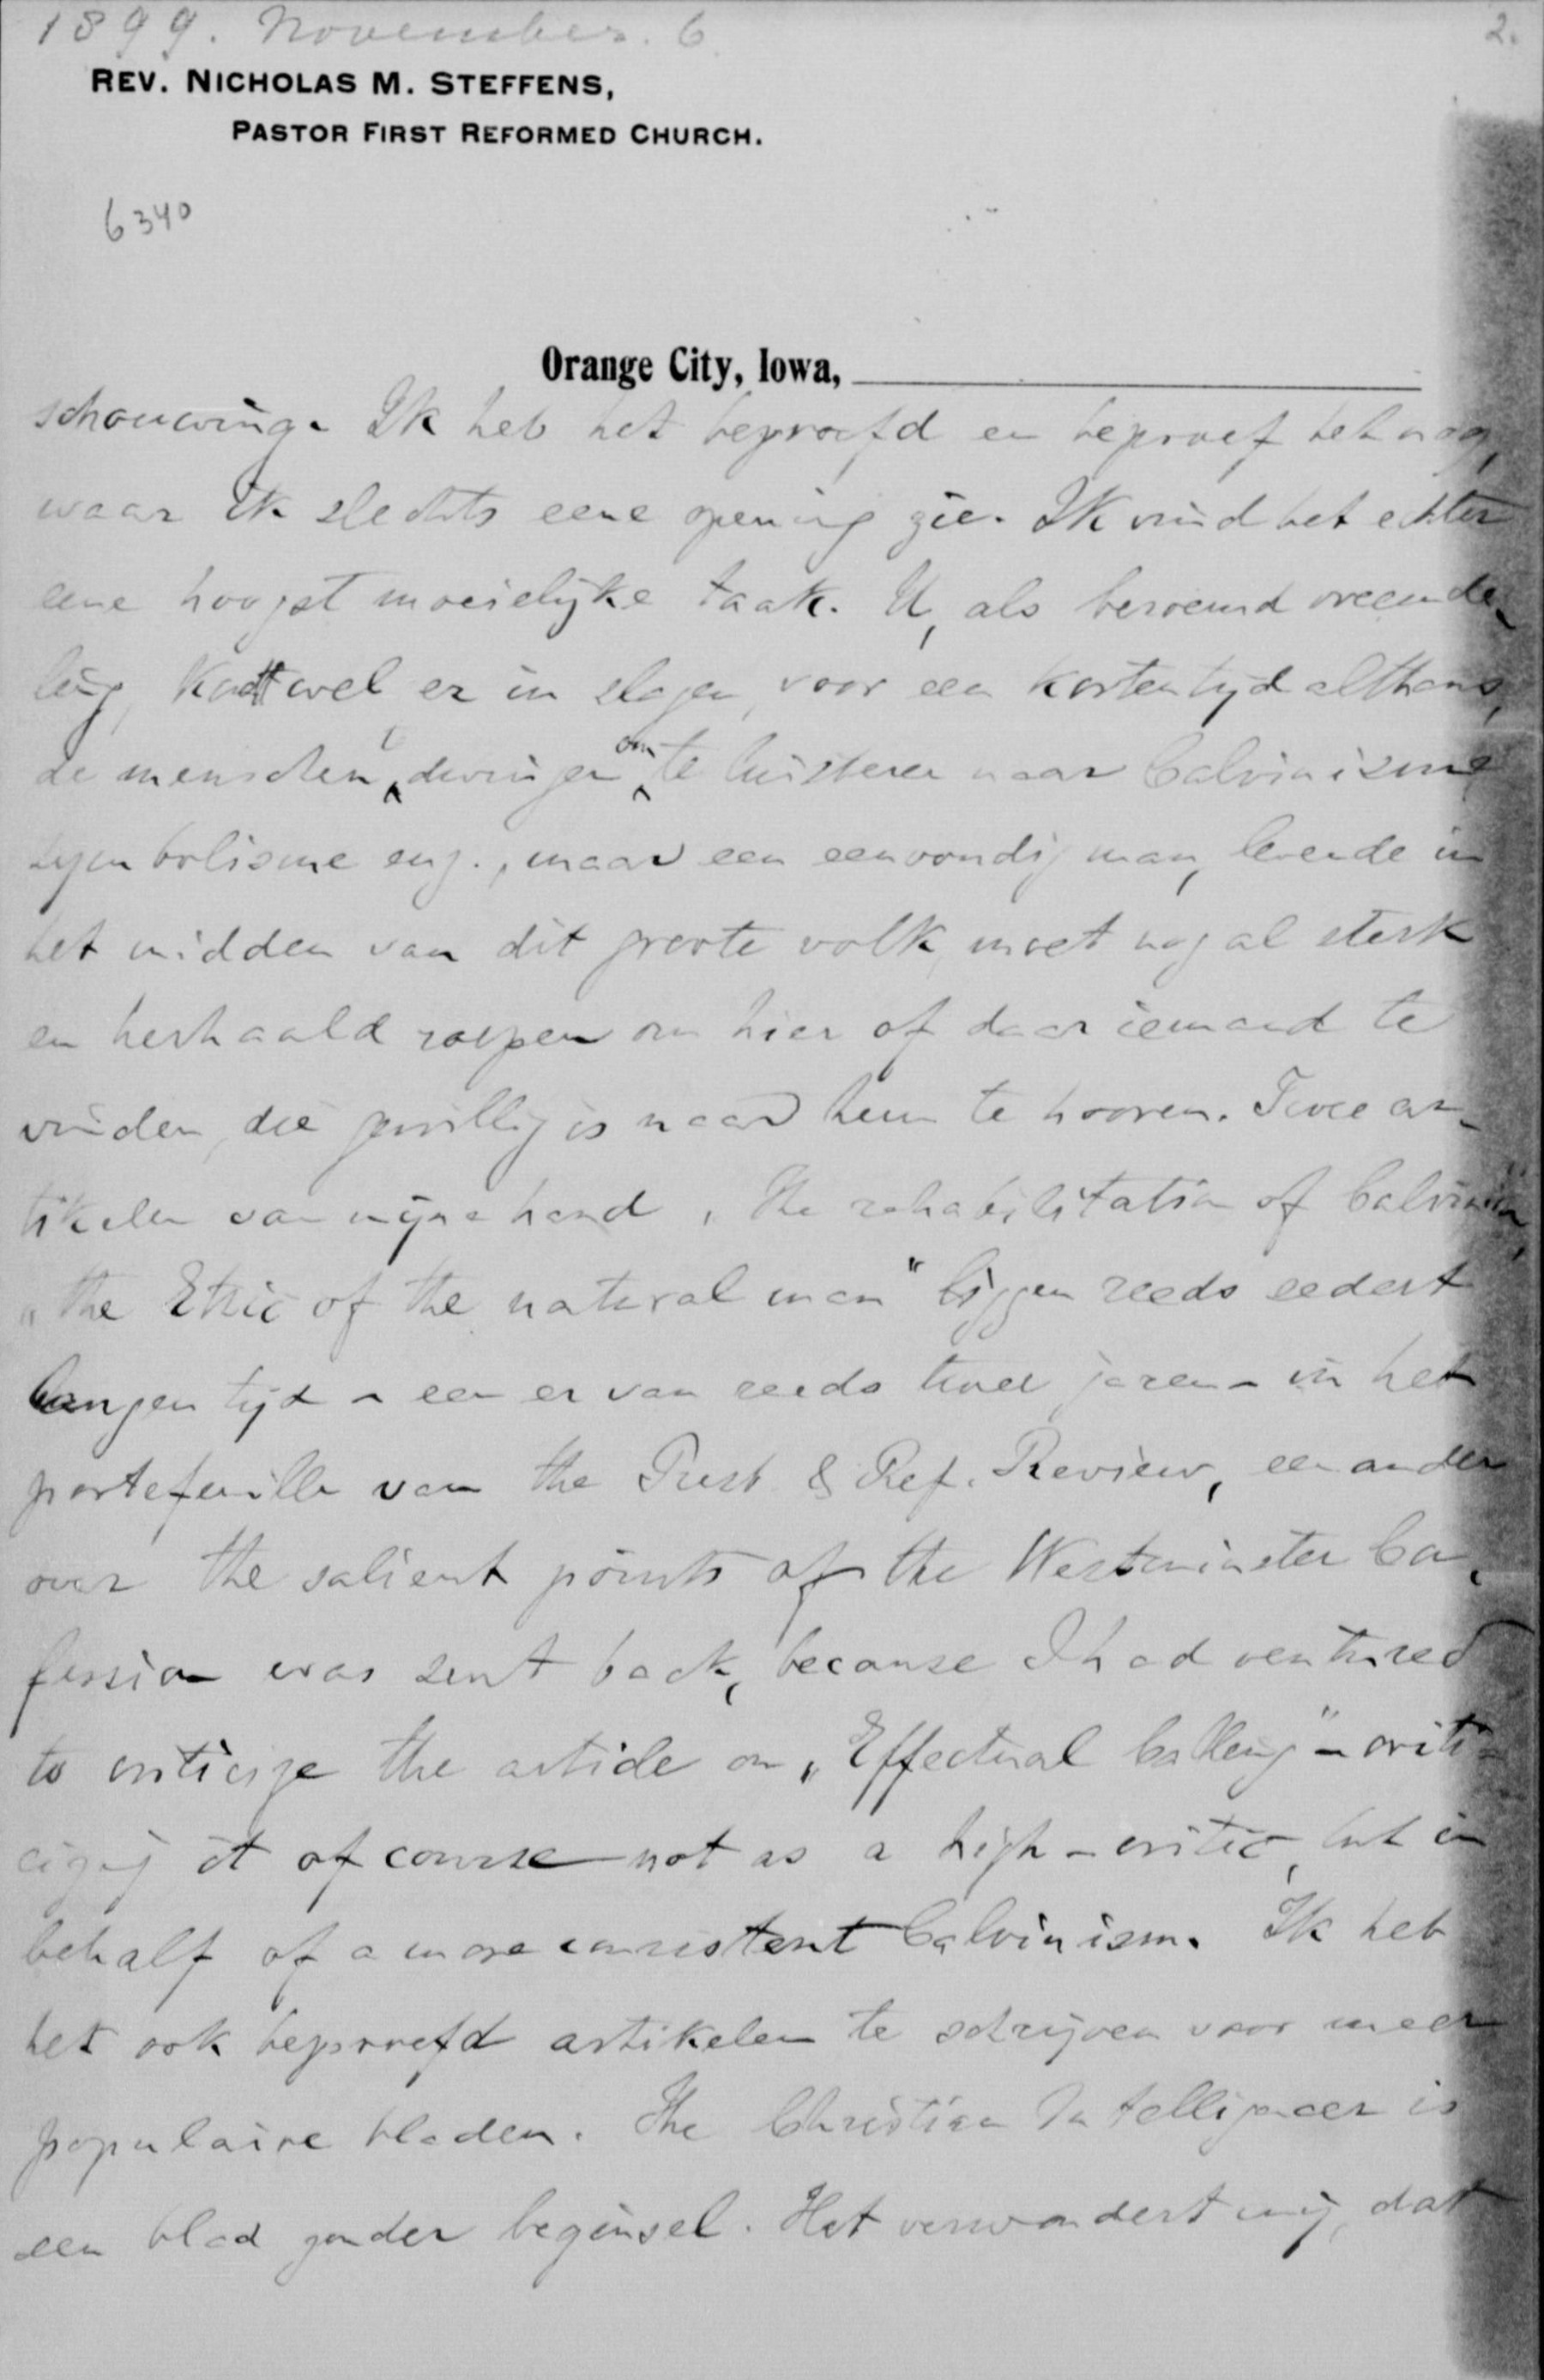 1899. November. 6
2.
REV. NICHOLAS M. STEFFENS,
PASTOR FIRST REFORMED CHURCH.
6340
Orange City, Iowa,
schouwing. Ik heb het beproefd en beproef het nog,
waar ik slechts eene opening zie. Ik vind het echter
eene hoogst moeielijke taak. U, als beroemd vreemde-
ling, kondt wel er in slagen, voor een korten tijd althans,
de menschen dwingen om te luisteren naar Calvinisme
symbolisme enz., maar een eenvoudig man, levende in
het midden van dit groote volk, moet nog al sterk
en herhaald roepen om hier of daar iemand te
vinden, die gewillig is naar hem te hooren. Twee ar-
tikelen van mijne hand, The rehabilitation of Calvinism"
"the Ethic of the natural man" liggen reeds eedert
langen tijd - een er van reeds twee jaren - in het
portefeuille van the Presb. & Ref. Review, een ander
over the salient points of the Westminster Con-
fession was sent back, because I had ventured
to criticize the article on "Effectual Calling" - criti-
cizing it of course not as a high-critic, but in
behalf of a more consistent Calvinism. Ik heb
het ook beproefd artikelen te schrijven voor meer
populaire bladen. The Christian Intelligencer is
een blad zonder beginsel. Het verwondert mij, dat